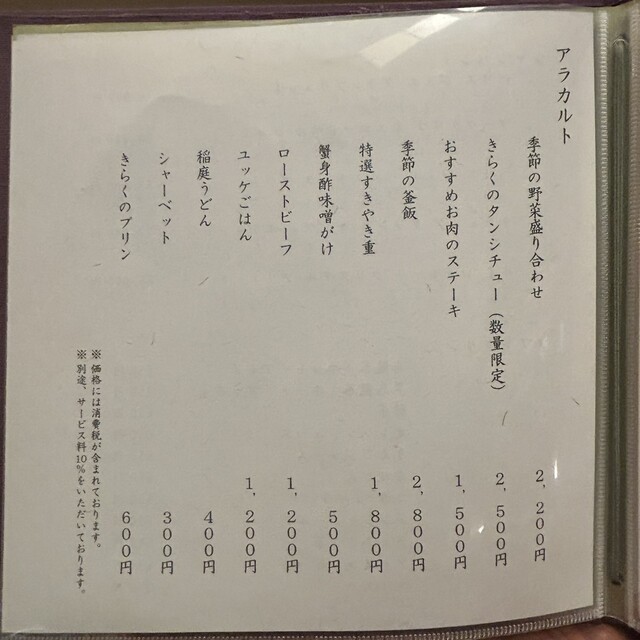 アラカルト
季節の野菜盛り合わせ 2,200円
きらくのタンシチュー(数量限定) 2,500円
おすすめお肉のステーキ 1,500円
季節の釜飯 2,800円
特選すきやき重 1,800円
蟹身酢味噌がけ 500円
ローストビーフ 1,200円
ユッケごはん 1,200円
稲庭うどん 400円
シャーベット 300円
きらくのプリン 600円
※価格には消費税が含まれております。
※別途、サービス料10%をいただいております。